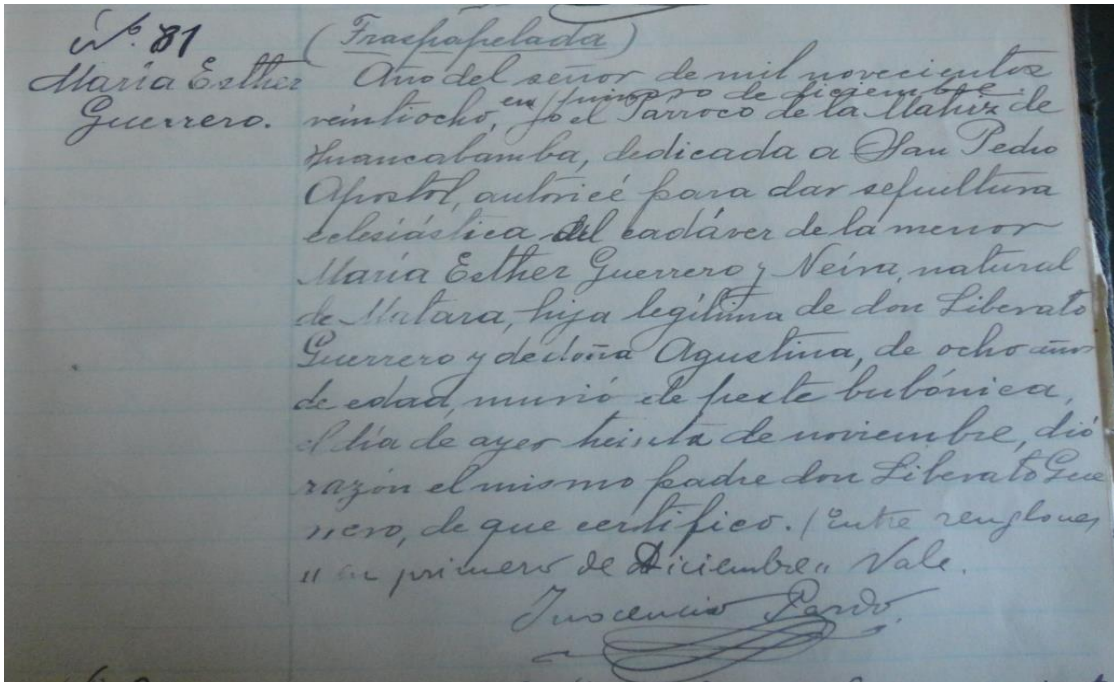 Nº. 81
(Traspapelada)
María Esther
Guerrero.
Año del señor de mil novecientos
en primero de diciembre
veintiocho, Yo el Párroco de la Matriz de
Huancabamba, dedicada a San Pedro
Apostol, autoricé para dar sepultura
eclesiástica al cadáver de la menor
María Esther Guerrero y Neira, natural
de Matara, hija legítima de don Liberato
Guerrero y de doña Agustina, de ocho años
de edad, murió de peste bubónica,
el día de ayer treinta de noviembre, dió
razón el mismo padre don Liberato Gue
rrero, de que certifico. (Entre renglones
"en primero de Diciembre" Vale.
Inocencio Pardo